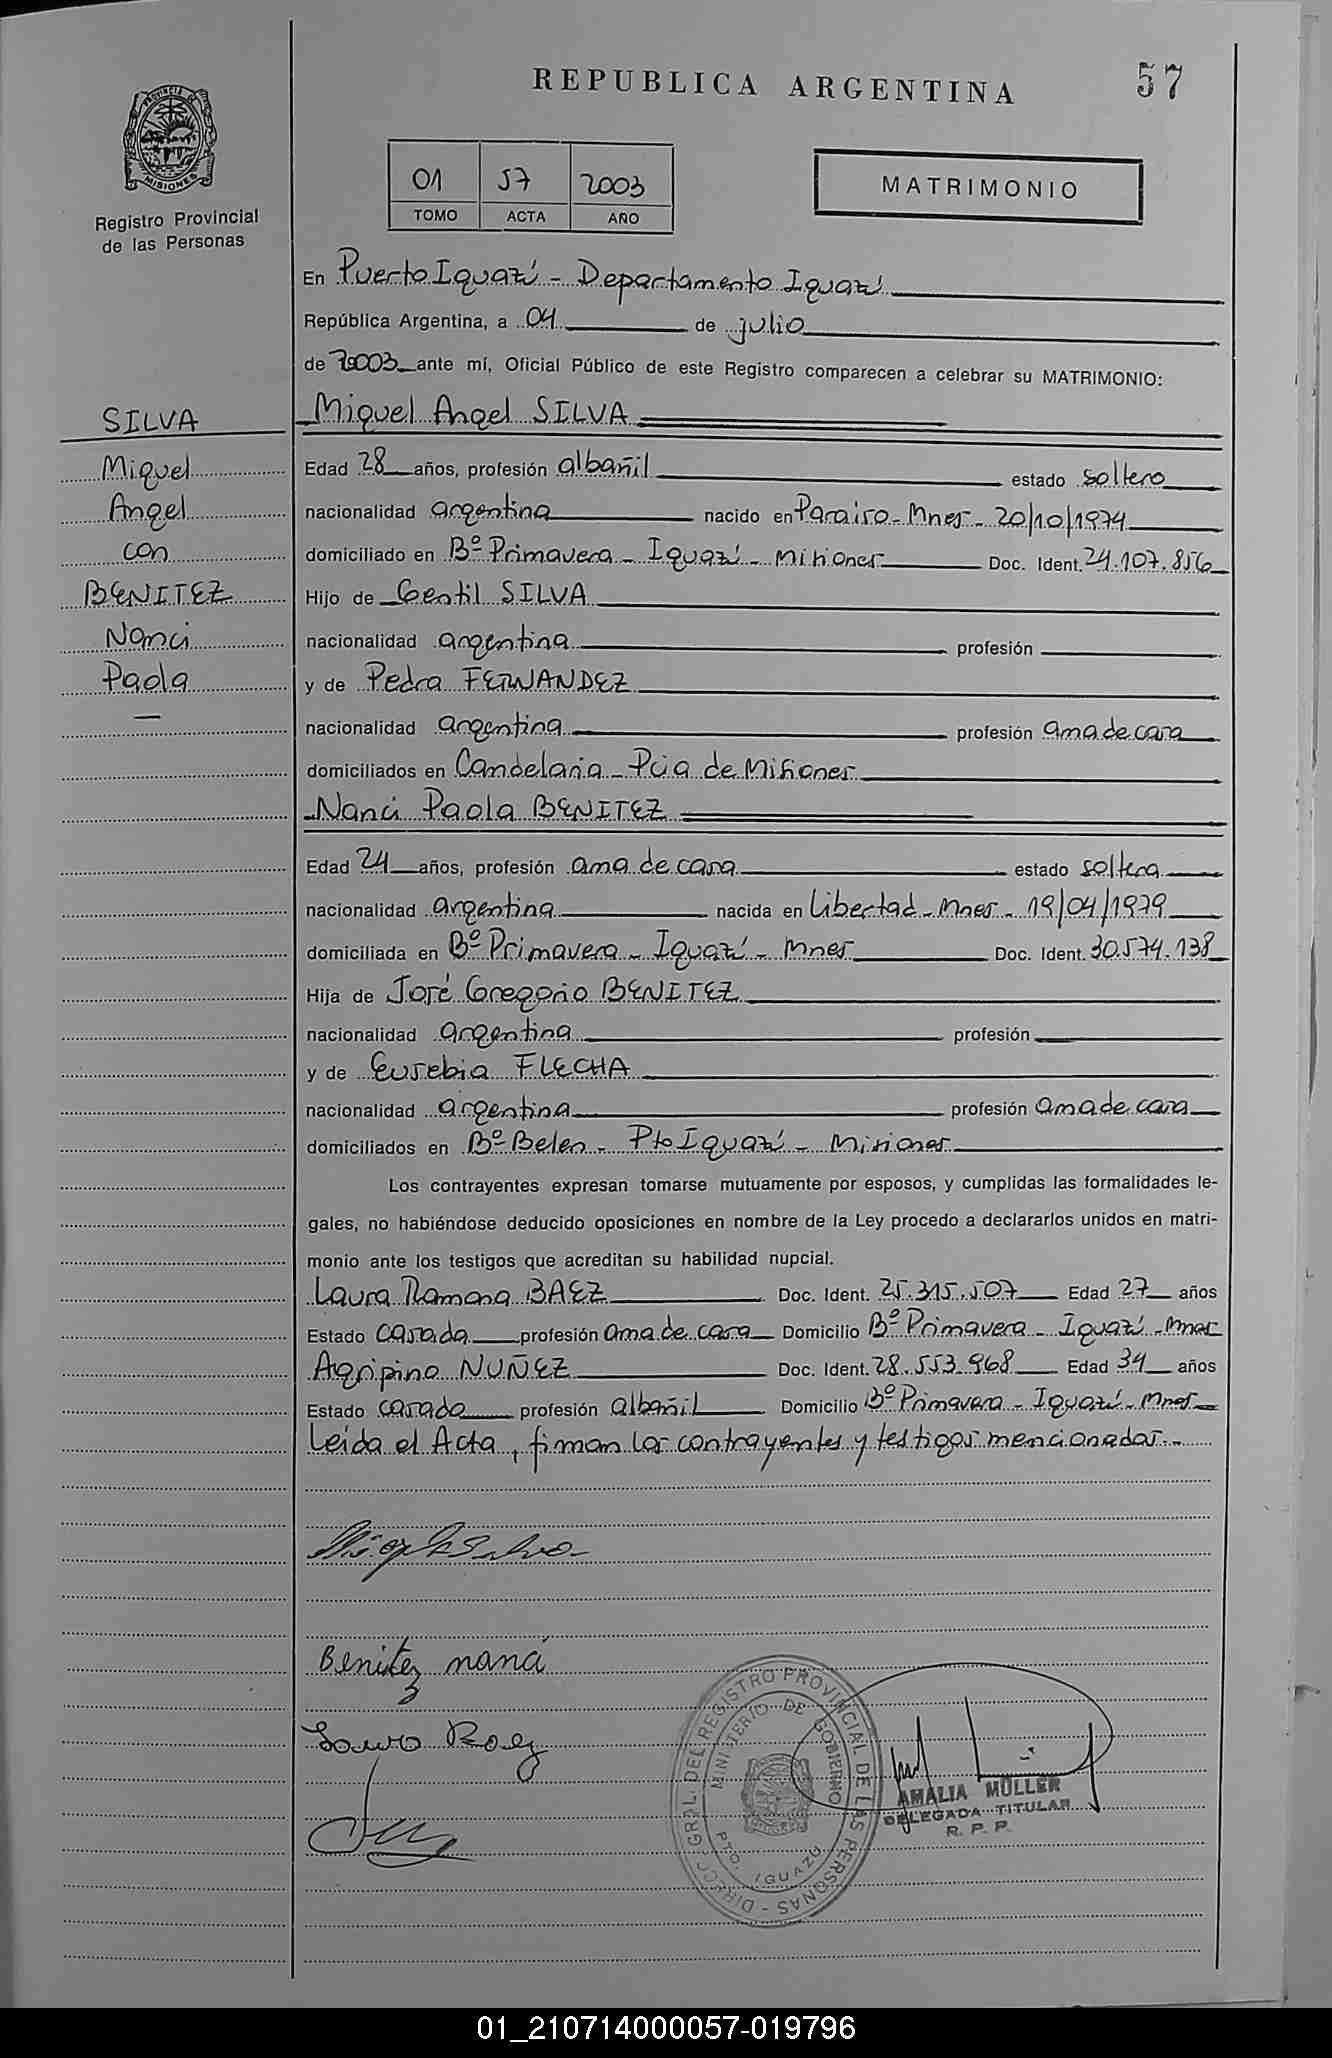 REPUBLICA ARGENTINA
57
PROVINCIA DE
MISIONES
Registro Provincial
de las Personas
01 57 2003
TOMO ACTA AÑO
MATRIMONIO
En Puerto Iguazú - Departamento Iguazú
República Argentina, a 04 de julio
de 2003 ante mí, Oficial Público de este Registro comparecen a celebrar su MATRIMONIO:
SILVA
Miguel
Angel
con
BENITEZ
Nanci
Paola
—
Miguel Angel SILVA
Edad 28 años, profesión albañil estado soltero
nacionalidad argentina nacido en Paraiso - Mnes - 20/10/1974
domiciliado en Bº Primavera - Iguazú - Misiones Doc. Ident. 24.107.856
Hijo de Gentil SILVA
nacionalidad argentina profesión
y de Pedra FERNANDEZ
nacionalidad argentina profesión ama de casa
domiciliados en Candelaria - Pcia de Misiones
Nanci Paola BENITEZ
Edad 24 años, profesión ama de casa estado soltera
nacionalidad argentina nacida en Libertad - Mnes - 19/04/1979
domiciliada en Bº Primavera - Iguazú - Mnes Doc. Ident. 30.574.138
Hija de José Gregorio BENITEZ
nacionalidad argentina profesión
y de Eusebia FLECHA
nacionalidad argentina profesión ama de casa
domiciliados en Bº Belen - Pto Iguazú - Misiones
Los contrayentes expresan tomarse mutuamente por esposos, y cumplidas las formalidades le-
gales, no habiéndose deducido oposiciones en nombre de la Ley procedo a declararlos unidos en matri-
monio ante los testigos que acreditan su habilidad nupcial.
Laura Ramona BAEZ Doc. Ident. 25.315.507 Edad 27 años
Estado casada profesión ama de casa Domicilio Bº Primavera - Iguazú - Mnes
Agripino NUÑEZ Doc. Ident. 28.553.968 Edad 34 años
Estado casado profesión albañil Domicilio Bº Primavera - Iguazú - Mnes
Leida el Acta, firman los contrayentes y testigos mencionados.-
Benitez nanci
Laura Baez
DIRECC. GRAL. DEL REGISTRO PROVINCIAL DE LAS PERSONAS -
MINISTERIO DE GOBIERNO
PTO. IGUAZU
AMALIA MULLER
DELEGADA TITULAR
R. P. P.
01_210714000057-019796